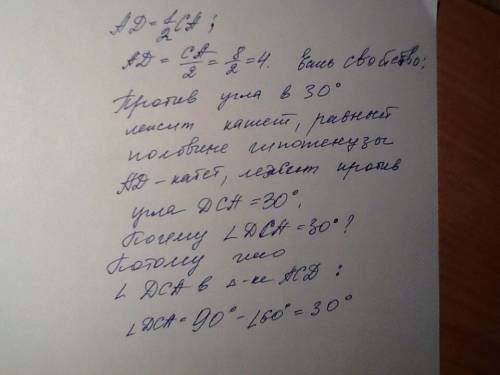 AD = 1/2 CA;
AD = CA/2 = 8/2 = 4. есть свойство:
Против угла в 30°
лежит катет, равный
половине гипотенузы
AD – катет, лежит против
угла DCA = 30°.
Почему ∠DCA = 30°?
Потому что
∠DCA в △-ке ACD:
∠DCA = 90° – ∠60° = 30°